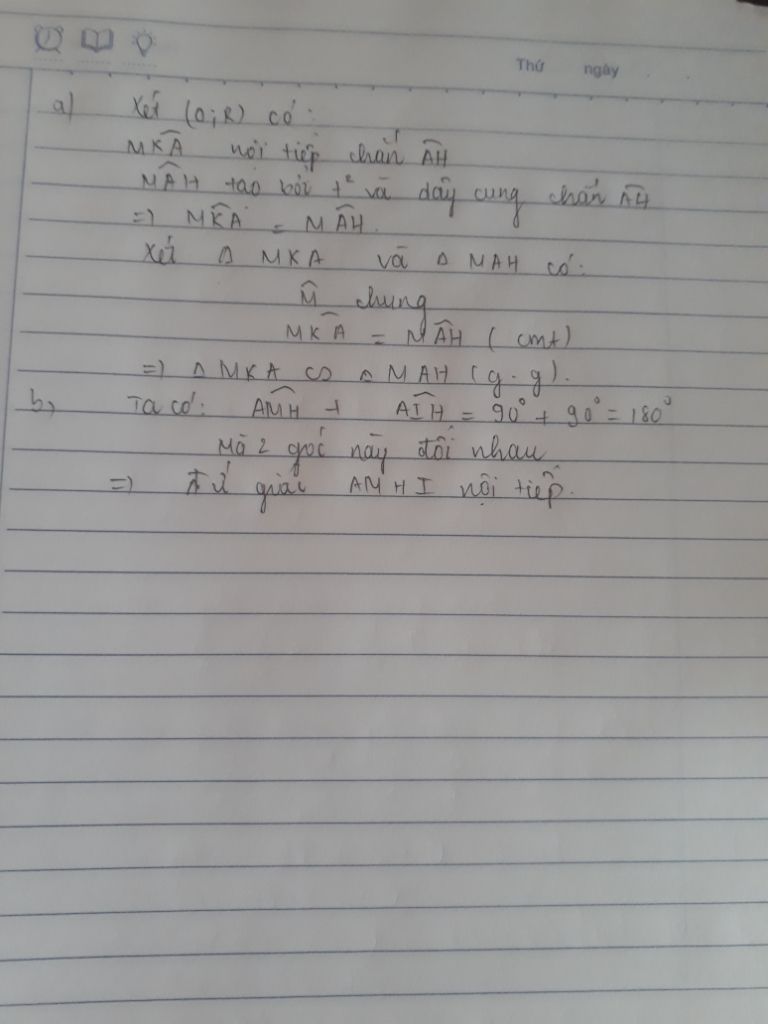 Thứ ngày
a) Xét (O;R) có:
MK̂A nội tiếp chắn A͡H
MÂH tạo bởi t² và dây cung chắn A͡H
=> MK̂A = MÂH.
Xét Δ MKA và Δ MAH có:
M̂ chung
MK̂A = MÂH (cmt)
=> Δ MKA ∽ Δ MAH (g.g).
b, Ta có: AM̂H + AÎH = 90° + 90° = 180°
Mà 2 góc này đối nhau
=> Tứ giác AMHI nội tiếp.